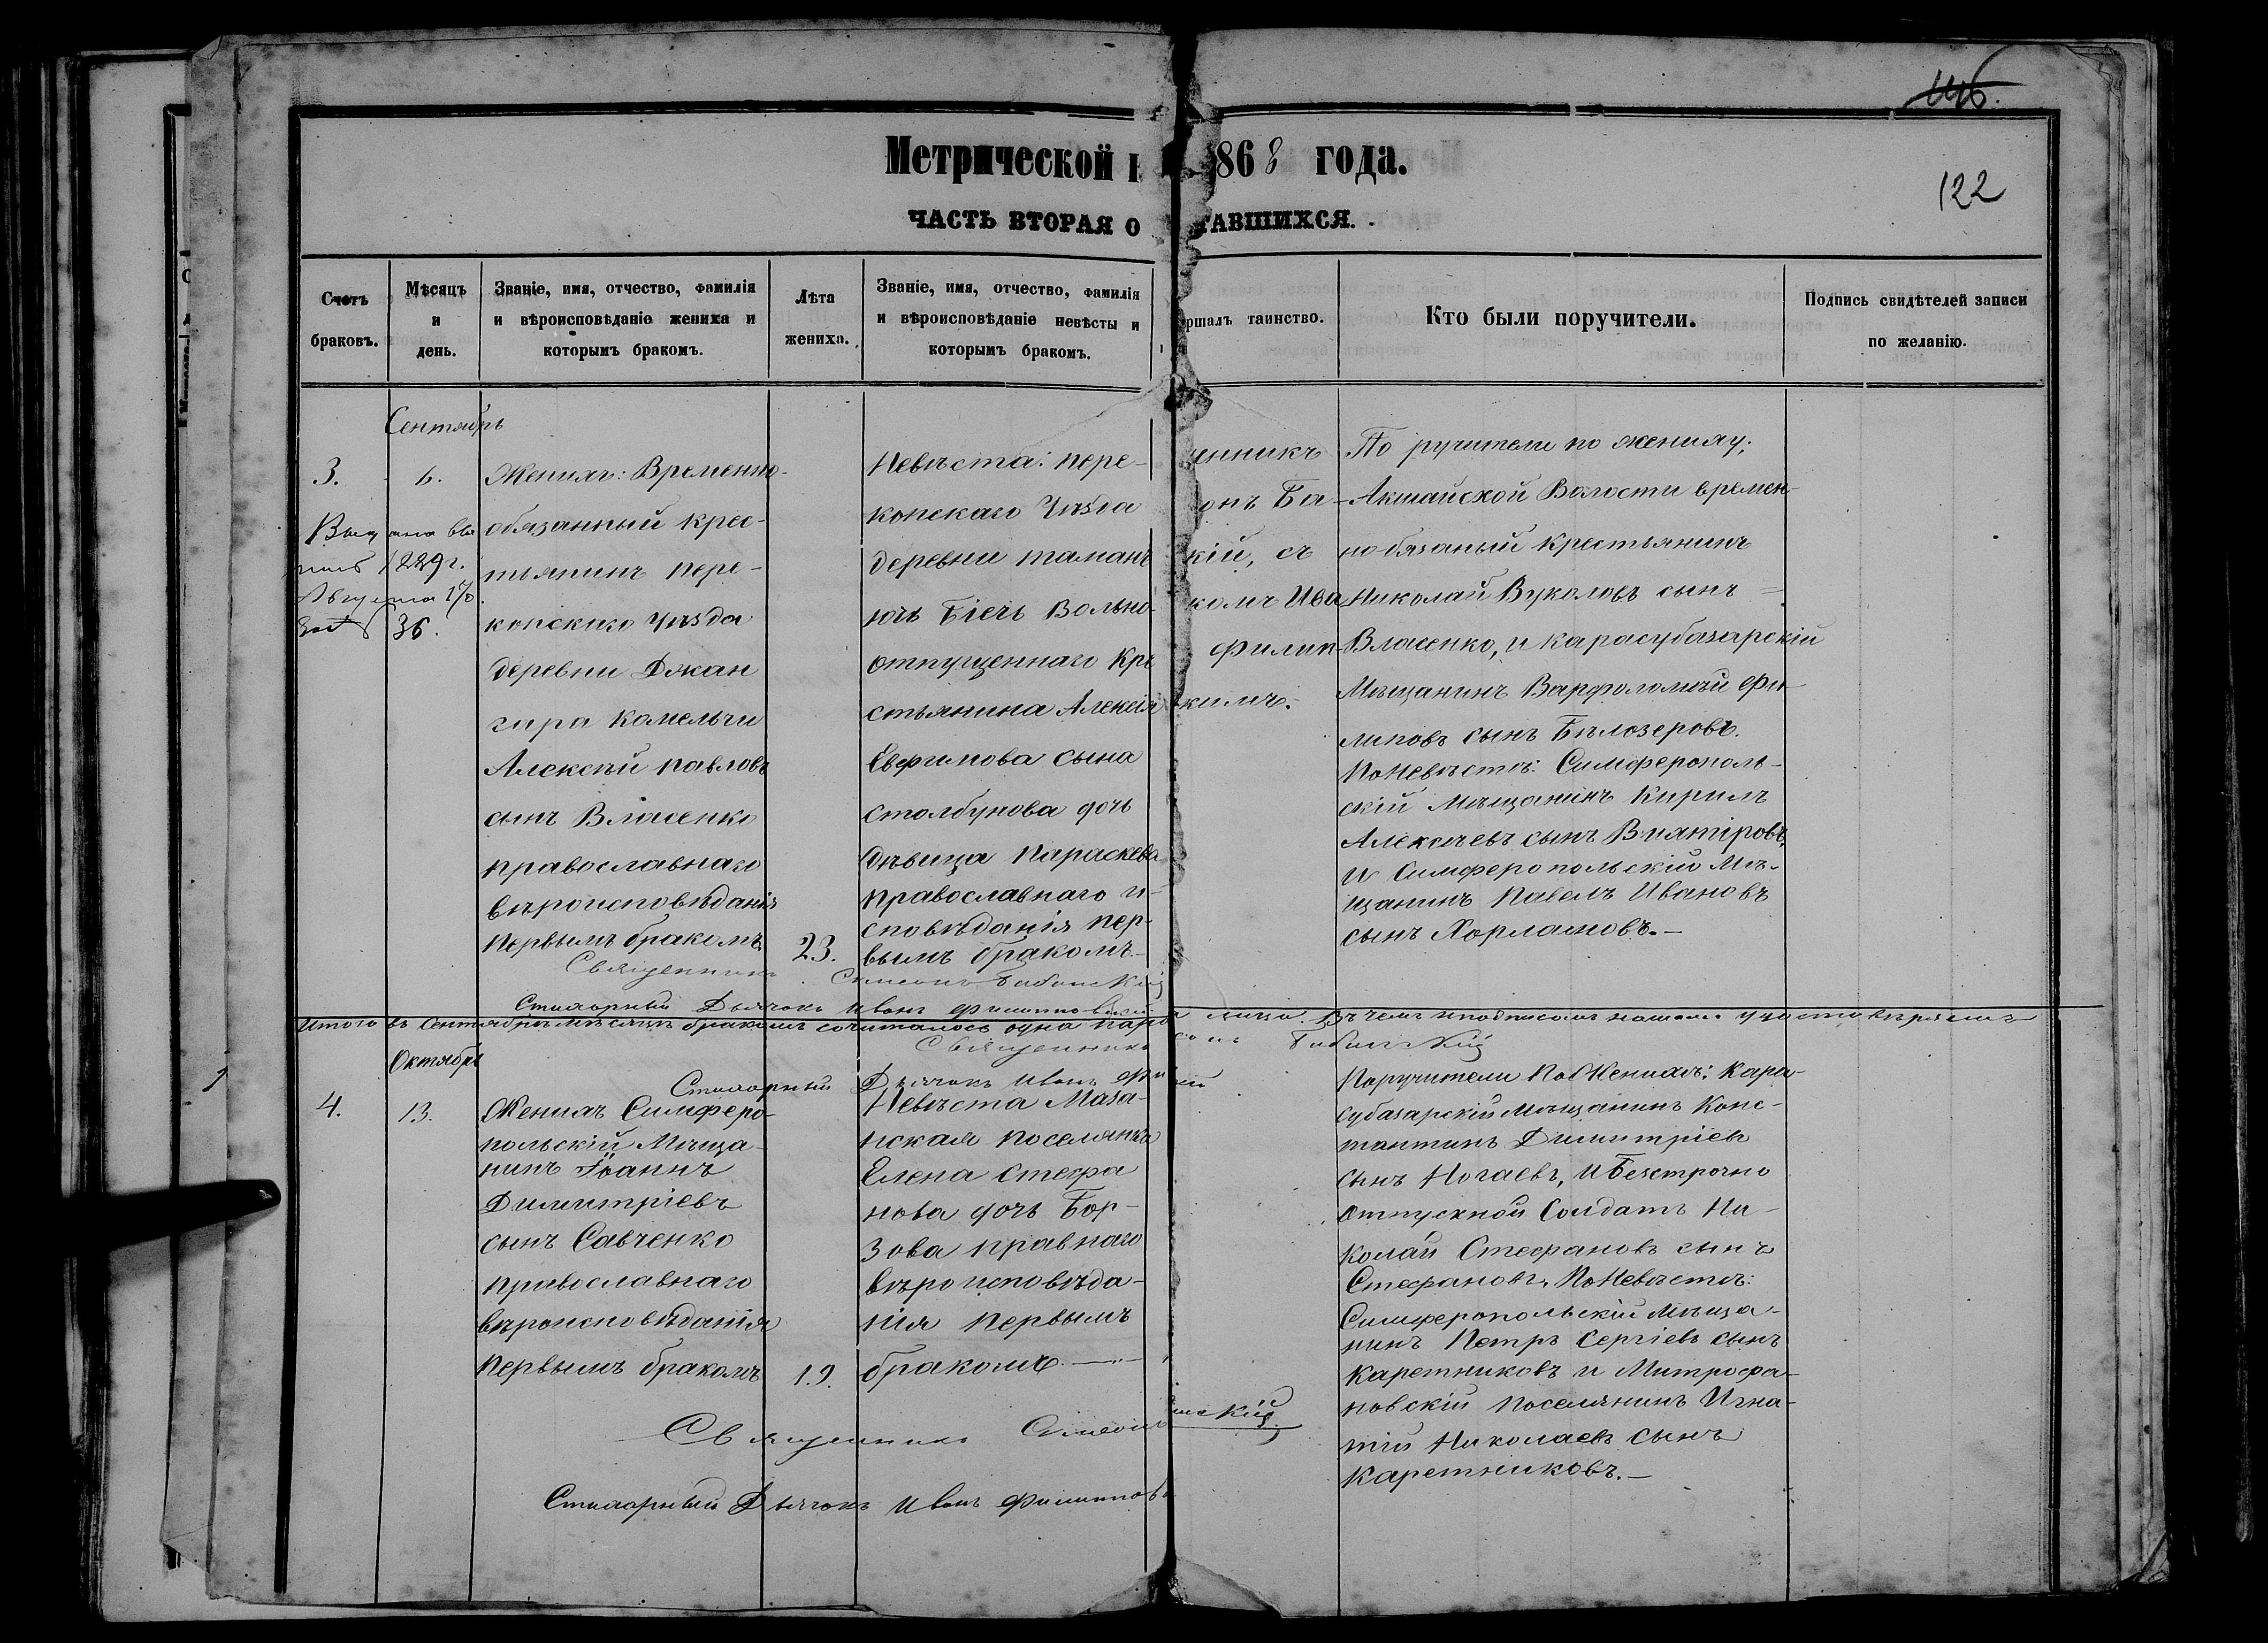 122
Метрической 1868 года.
ЧАСТЬ ВТОРАЯ О ТАВШИХСЯ.
Счетъ браковъ.
Мѣсяцъ и день.
Званіе, имя, отчество, фамилія
и вѣроисповѣданіе жениха и
которымъ бракомъ.
Лѣта жениха.
Званіе, имя, отчество, фамилія
и вѣроисповѣданіе невѣсты и
которымъ бракомъ.
ршалъ таинство.
Кто были поручители.
Подпись свидѣтелей записи
по желанію.
Сентябрь
3.
6.
36.
Женихъ: Временно-
обязанный крес-
тьянинъ пере-
копскаго уѣзда
деревни Джан
гира Комельчи
Алексѣй павловъ
сынъ Власенко
православнаго
вѣроисповѣданія
первымъ бракомъ
23.
Невѣста: пере-
копскаго Уѣзда
деревни таманъ
Біечь Вольно-
отпущеннаго Кре
стьянина Алексія
Евфимова сына
столбунова дочь
дѣвица Параскева
православнаго и-
сповѣданія пер-
вымъ бракомъ.-
енникъ
онъ Ба-
кій, съ
комъ Ива
Филип-
кимъ.
По ручители по жениху;
Акшайской Волости времен-
нобязаный крестьянинъ
Николай Вуколовъ сынъ =
Власенко, и карасубазарскій
Мѣщанинъ Варфоломѣй Фи-
липовъ сынъ Бѣлозеровъ.
По Невѣстѣ: Симферополь-
скій Мѣщанинъ Кирилъ
Алексѣевъ сынъ
и Симферопольскій Мѣ-
щанинъ Павелъ Ивановъ
сынъ Хорламовъ.-
Священникъ Симеонъ Бабинскій
Стихарный Дьячокъ Иванъ Филипповскій
Итого въ Сентябрѣ мѣсяцѣ бракомъ сочиталось одна пара лицъ. Въ чемъ и подписомъ нашимъ удостовѣряемъ
Священникъ Бабинскій
Стихарный Дьячокъ Иванъ Фи кій
Октябрь
4.
13.
Женихъ Симферо-
польскій Мѣща-
нинъ Іоаннъ
Димитріевъ
сынъ Савченко
православнаго
вѣроисповѣданія
первымъ бракомъ
19.
Невѣста Маза-
нская поселянка
Елена Стефа
нова дочь Бор-
зова правнаго
вѣроисповѣда-
нія первымъ
бракомъ.
Поручители По Женихѣ: Кара-
субазарскій Мѣщанинъ Конс-
тантинъ Димитріевъ
сынъ Ногаевъ, и Безстрочно
отпускной Солдатъ Ни-
колай Стефановъ сынъ
Стефановъ, По Невѣстѣ:
Симферопольскій Мѣща-
нинъ Петръ Сергіевъ сынъ
Каретниковъ и Митрофа-
новскій поселянинъ Игна-
тій Николаевъ сынъ
Каретниковъ.-
Священникъ Симеонъ нскій
Стихарный Дьячокъ Иванъ Филиппов